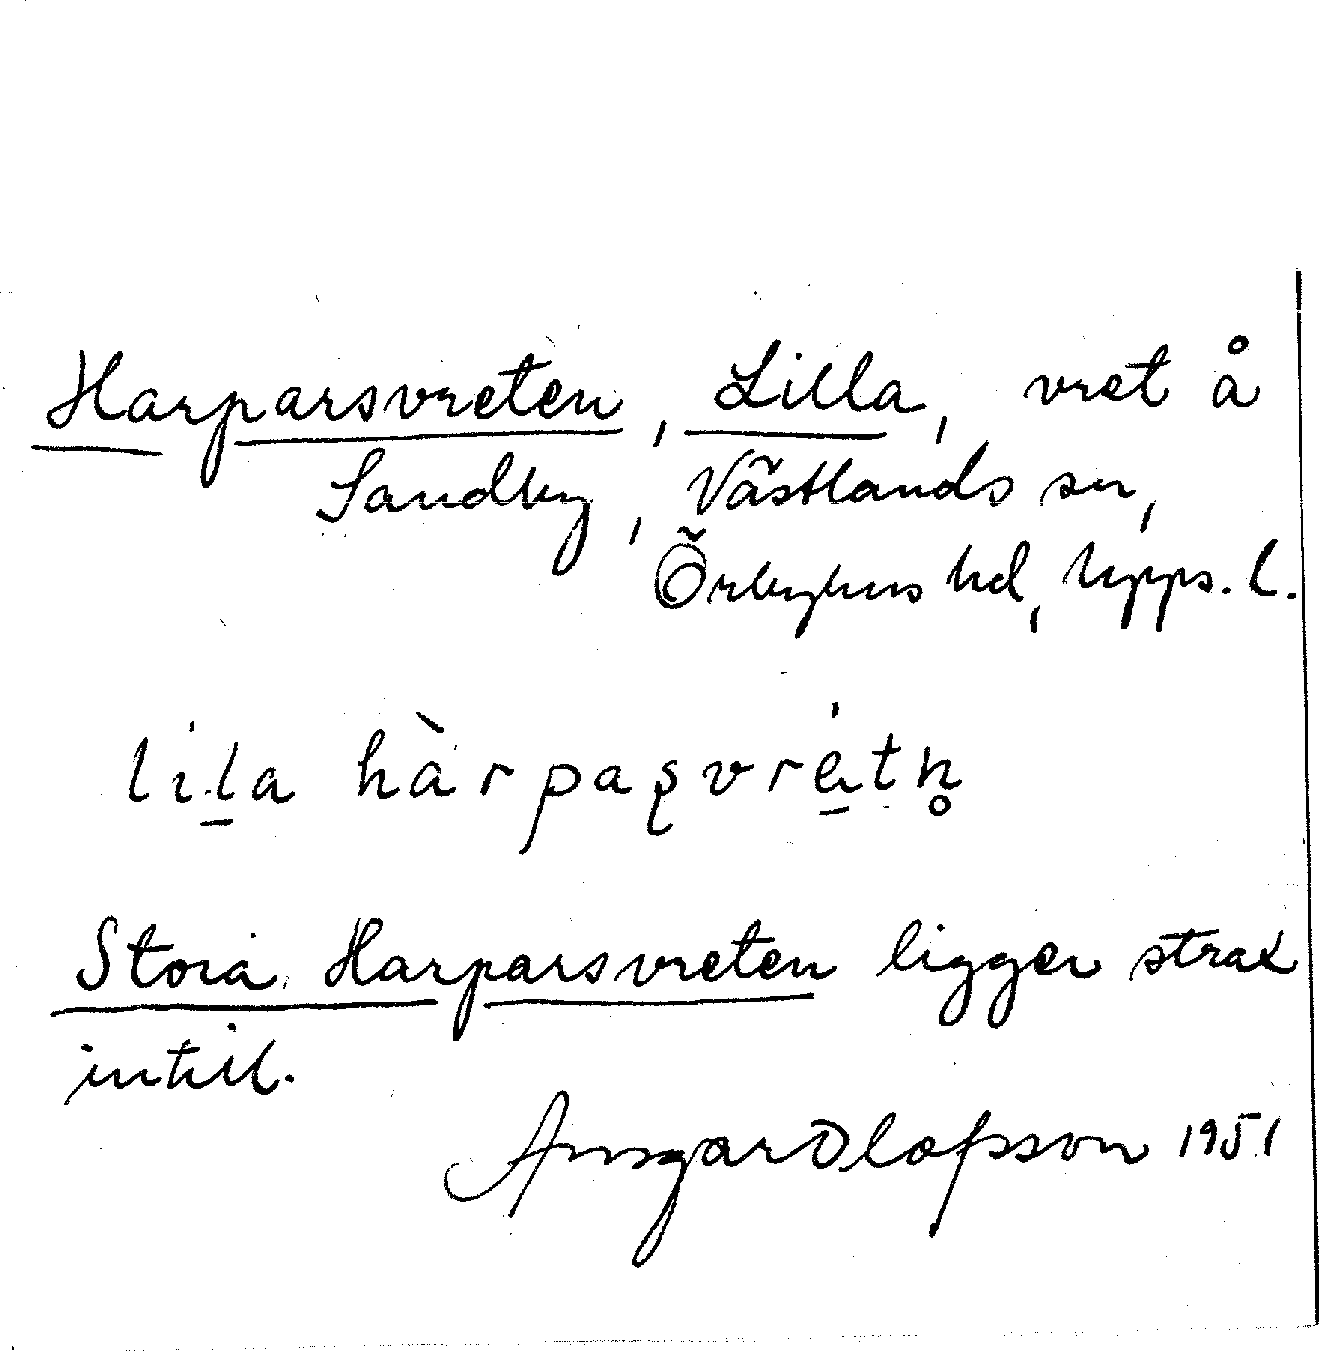 Harparsvreten, Lilla, vret å
Sandby, Västlands sn,
Örbyhus hd, Upps. l.
lil̲a hàrpaʂvré̲tn̥
Stora Harparsvreten ligger strax
intill.
Ansgar Olofsson 1951